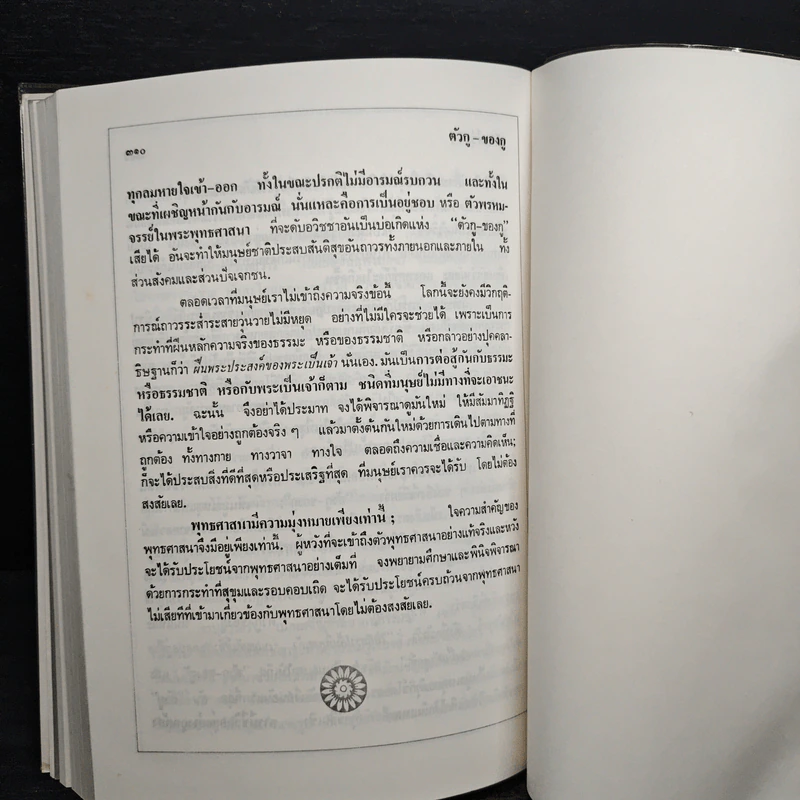 ๓๑๐ ตัวกู – ของกู
ทุกลมหายใจเข้า-ออก ทั้งในขณะปรกติไม่มีอารมณ์รบกวน และทั้งใน
ขณะที่เผชิญหน้ากันกับอารมณ์ นั่นแหละคือการเป็นอยู่ชอบ หรือ ตัวพรหม-
จรรย์ในพระพุทธศาสนา ที่จะดับอวิชชาอันเป็นบ่อเกิดแห่ง “ตัวกู-ของกู”
เสียได้ อันจะทำให้มนุษย์ชาติประสบสันติสุขอันถาวรทั้งภายนอกและภายใน ทั้ง
ส่วนสังคมและส่วนปัจเจกชน.
ตลอดเวลาที่มนุษย์เราไม่เข้าถึงความจริงข้อนี้ โลกนี้จะยังคงมีวิกฤติ-
การณ์ถาวรระส่ำระสายวุ่นวายไม่มีหยุด อย่างที่ไม่มีใครจะช่วยได้ เพราะเป็นการ
กระทำที่ฝืนหลักความจริงของธรรมะ หรือของธรรมชาติ หรือกล่าวอย่างปุคคลา-
ธิษฐานก็ว่า ฝืนพระประสงค์ของพระเป็นเจ้า นั่นเอง. มันเป็นการต่อสู้กันกับธรรมะ
หรือธรรมชาติ หรือกับพระเป็นเจ้าก็ตาม ชนิดที่มนุษย์ไม่มีทางที่จะเอาชนะ
ได้เลย. ฉะนั้น จึงอย่าได้ประมาท จงได้พิจารณาดูมันใหม่ ให้มีสัมมาทิฏฐิ
หรือความเข้าใจอย่างถูกต้องจริง ๆ แล้วมาตั้งต้นกันใหม่ด้วยการเดินไปตามทางที่
ถูกต้อง ทั้งทางกาย ทางวาจา ทางใจ ตลอดถึงความเชื่อและความคิดเห็น;
ก็จะได้ประสบสิ่งที่ดีที่สุดหรือประเสริฐที่สุด ที่มนุษย์เราควรจะได้รับ โดยไม่ต้อง
สงสัยเลย.
พุทธศาสนามีความมุ่งหมายเพียงเท่านี้ ; ใจความสำคัญของ
พุทธศาสนาจึงมีอยู่เพียงเท่านี้. ผู้หวังที่จะเข้าถึงตัวพุทธศาสนาอย่างแท้จริงและหวัง
จะได้รับประโยชน์จากพุทธศาสนาอย่างเต็มที่ จงพยายามศึกษาและพินิจพิจารณา
ด้วยการกระทำที่สุขุมและรอบคอบเถิด จะได้รับประโยชน์ครบถ้วนจากพุทธศาสนา
ไม่เสียทีที่เข้ามาเกี่ยวข้องกับพุทธศาสนาโดยไม่ต้องสงสัยเลย.